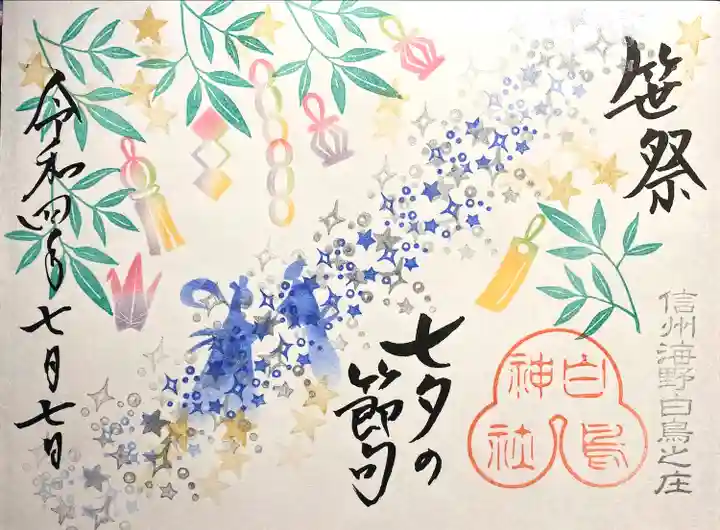 笹祭
信州海野白鳥之庄
白鳥神社
七夕の
節句
令和四年七月七日